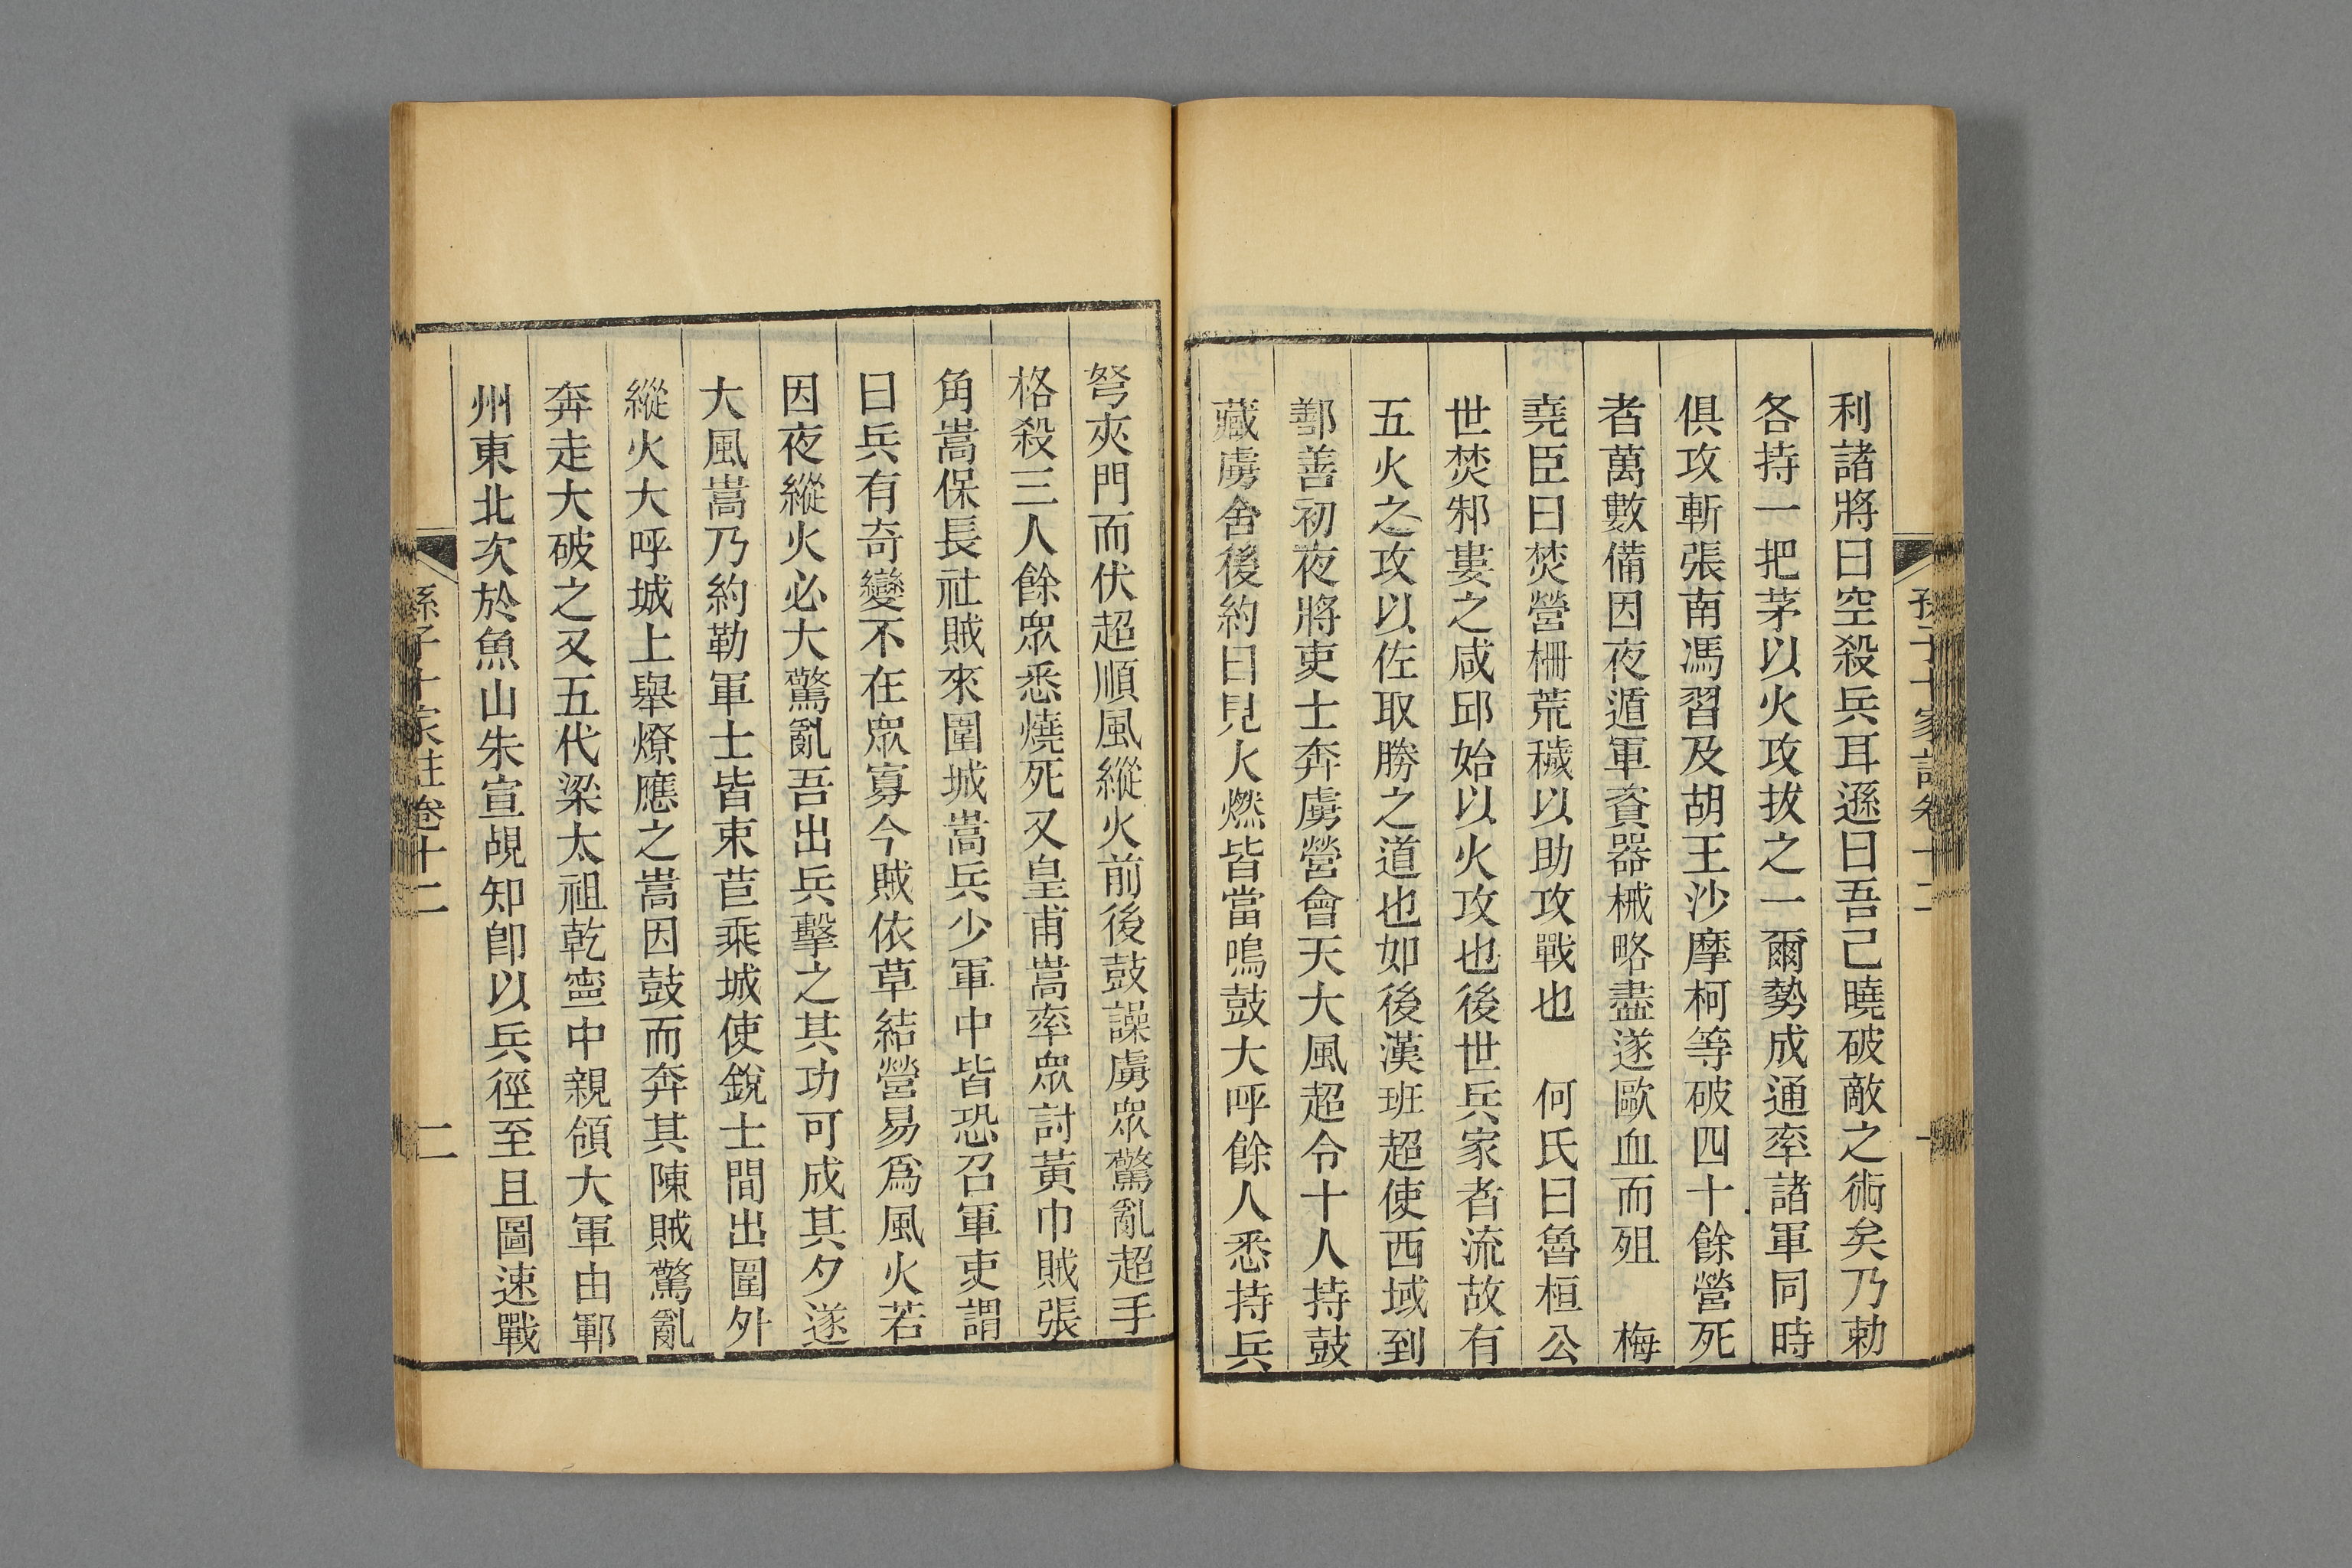 利諸將曰空殺兵耳遜曰吾己曉破敵之術矣乃勅
各持一把茅以火攻拔之一爾勢成通率諸軍同時
俱攻斬張南馮習及胡王沙摩柯等破四十餘營死
者萬數備因夜遁軍資器械略盡遂歐血而殂　梅
堯臣曰焚營柵荒穢以助攻戰也　何氏曰魯桓公
世焚邾婁之咸邱始以火攻也後世兵家者流故有
五火之攻以佐取勝之道也如後漢班超使西域到
鄯善初夜將吏士奔虜營會天大風超令十人持鼓
藏虜舍後約曰見火燃皆當鳴鼓大呼餘人悉持兵
弩夾門而伏超順風縱火前後鼓譟虜眾驚亂超手
格殺三人餘眾悉燒死又皇甫嵩率眾討黃巾賊張
角嵩保長社賊來圍城嵩兵少軍中皆恐召軍吏謂
曰兵有奇變不在眾寡今賊依草結營易爲風火若
因夜縱火必大驚亂吾出兵擊之其功可成其夕遂
大風嵩乃約勒軍士皆束苣乘城使銳士間出圍外
縱火大呼城上舉燎應之嵩因鼓而奔其陳賊驚亂
奔走大破之又五代梁太祖乾寍中親領大軍由鄆
州東北次於魚山朱宣覘知卽以兵徑至且圖速戰
孫子十家註卷十二
二